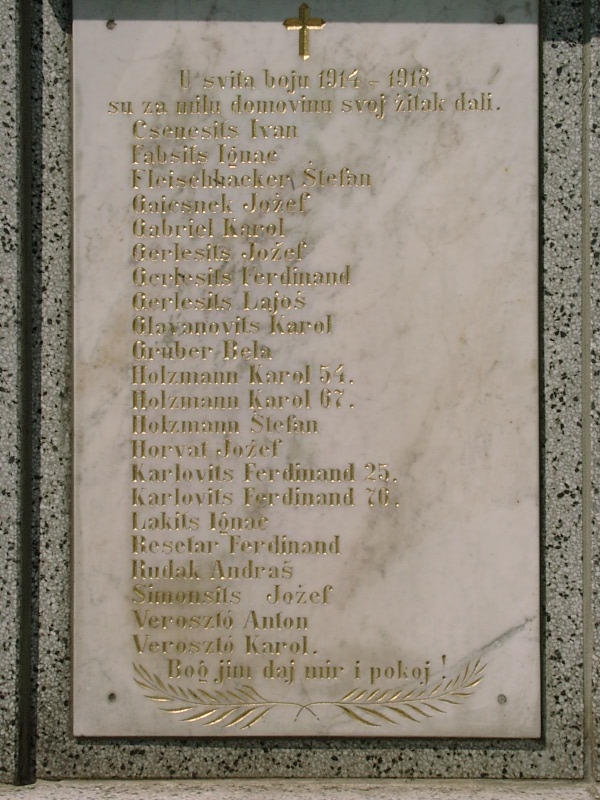 U svita boju 1914 - 1918
su za milu domovinu svoj žitak dali.
Csenesits Ivan
Fabsits Ignac
Fleischhacker Štefan
Gaicsnek Jožef
Gabriel Karol
Gerlesits Jožef
Gerlesits Ferdinand
Gerlesits Lajoš
Glavanovits Karol
Gruber Bela
Holzmann Karol 54.
Holzmann Karol 67.
Holzmann Štefan
Horvat Jožef
Karlovits Ferdinand 25.
Karlovits Ferdinand 76.
Lakits Ignac
Resetar Ferdinand
Rudak Andraš
Simonsits Jožef
Verosztó Anton
Verosztó Karol.
Bog jim daj mir i pokoj !